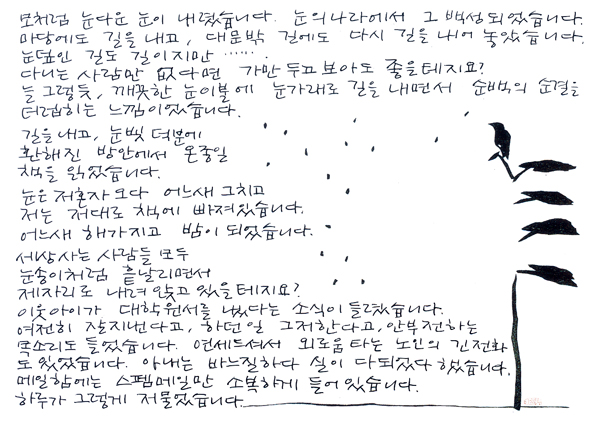 모처럼 눈다운 눈이 내렸습니다. 눈의나라에서 그 백성 되었습니다.
마당에도 길을 내고, 대문밖 길에도 다시 길을 내어 놓았습니다.
눈덮인 길도 길이지만 ……
다니는 사람만 없다면 가만 두고 보아도 좋을테지요?
늘 그렇듯, 깨끗한 눈이불에 눈가래로 길을 내면서 순백의 순결을
더럽히는 느낌이었습니다.
길을 내고, 눈빛 덕분에
환해진 방안에서 온종일
책을 읽었습니다.
눈은 저혼자 오다 어느새 그치고
저는 저대로 책에 빠져있습니다.
어느새 해가지고 밤이 되었습니다.
세상사는 사람들 모두
눈송이처럼 흩날리면서
제자리로 내려 앉고 있을테지요?
이웃아이가 대학원서를 냈다는 소식이 들렸습니다.
여전히 잘지낸다고, 하던일 그저한다고, 안부전하는
목소리도 들었습니다. 연세드셔서 외로움 타는 노인의 긴전화
도 있었습니다. 아내는 바느질하다 실이 다되었다 하였습니다.
메일함에는 스팸메일만 소복하게 들어 있습니다.
하루가 그렇게 저물었습니다.